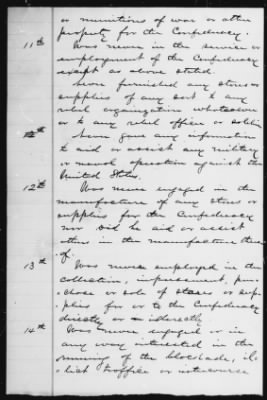 or munitions of war or other
property for the Confederacy.
11th Was never in the service or
employment of the Confederacy
except as above stated.
Never furnished any stores or
supplies of any sort to any
rebel organization whatsoever
or to any rebel officer or soldier
12th Never gave any information
to aid or assist any military
or naval operation against the
United States.
12th Was never engaged in the
manufacture of any stores or
supplies for the Confederacy
nor did he aid or assist
others in the manufacture there
of.
13th Was never employed in the
collection, impressment, pur-
chase or sale of stores or sup-
plies for or to the Confederacy
directly or indirectly
14th Was never engaged or in
any way interested in the
running of the blockade, il-
licit traffic or intercourse